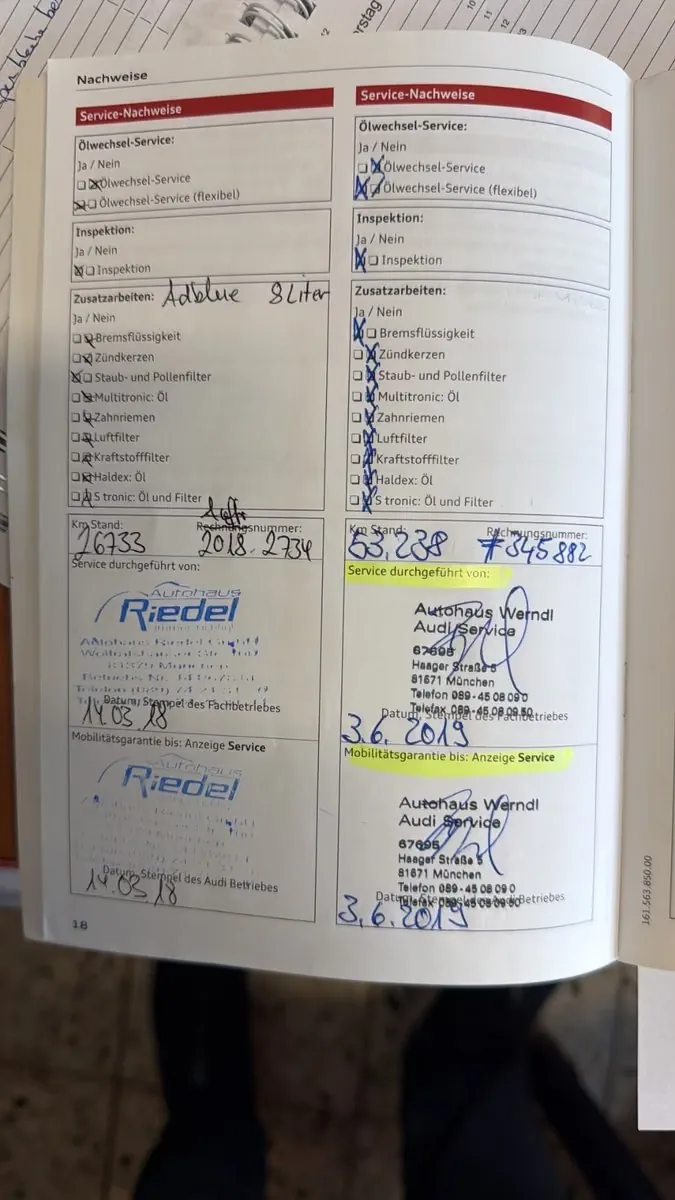 Nachweise
Service-Nachweise
Ölwechsel-Service:
Ja / Nein
Ölwechsel-Service
Ölwechsel-Service (flexibel)
Inspektion:
Ja / Nein
Inspektion
Zusatzarbeiten: Adblue 8 Liter
Ja / Nein
Bremsflüssigkeit
Zündkerzen
Staub- und Pollenfilter
Multitronic: Öl
Zahnriemen
Luftfilter
Kraftstofffilter
Haldex: Öl
S tronic: Öl und Filter
Km Stand: Rechnungsnummer:
26733 2018. 2734
Service durchgeführt von:
Autohaus
Riedel
Datum, Stempel des Fachbetriebes
14.03.18
Mobilitätsgarantie bis: Anzeige Service
Autohaus
Riedel
Datum, Stempel des Audi Betriebes
14.03.18
18
Service-Nachweise
Ölwechsel-Service:
Ja / Nein
Ölwechsel-Service
Ölwechsel-Service (flexibel)
Inspektion:
Ja / Nein
Inspektion
Zusatzarbeiten:
Ja / Nein
Bremsflüssigkeit
Zündkerzen
Staub- und Pollenfilter
Multitronic: Öl
Zahnriemen
Luftfilter
Kraftstofffilter
Haldex: Öl
S tronic: Öl und Filter
Km Stand: Rechnungsnummer:
53.238 #345882
Service durchgeführt von:
Autohaus Werndl
Audi Service
67695
Haager Straße 5
81671 München
Telefon 089-45 08 09 0
Telefax 089-45 08 09 50
Datum, Stempel des Fachbetriebes
3.6.2019
Mobilitätsgarantie bis: Anzeige Service
Autohaus Werndl
Audi Service
67695
Haager Straße 5
81671 München
Telefon 089-45 08 09 0
Telefax 089-45 08 09 50
Datum, Stempel des Audi Betriebes
3.6.2019
161.563.850.00